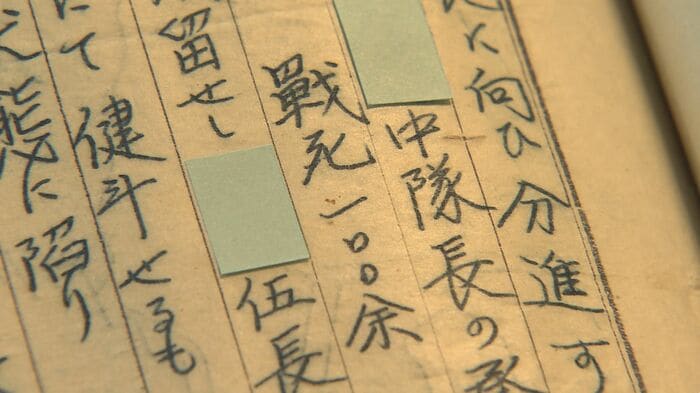 に向ひ分進す
中隊長の
戰死一〇〇余
留せし伍長
にて健斗せるも
態に陥り